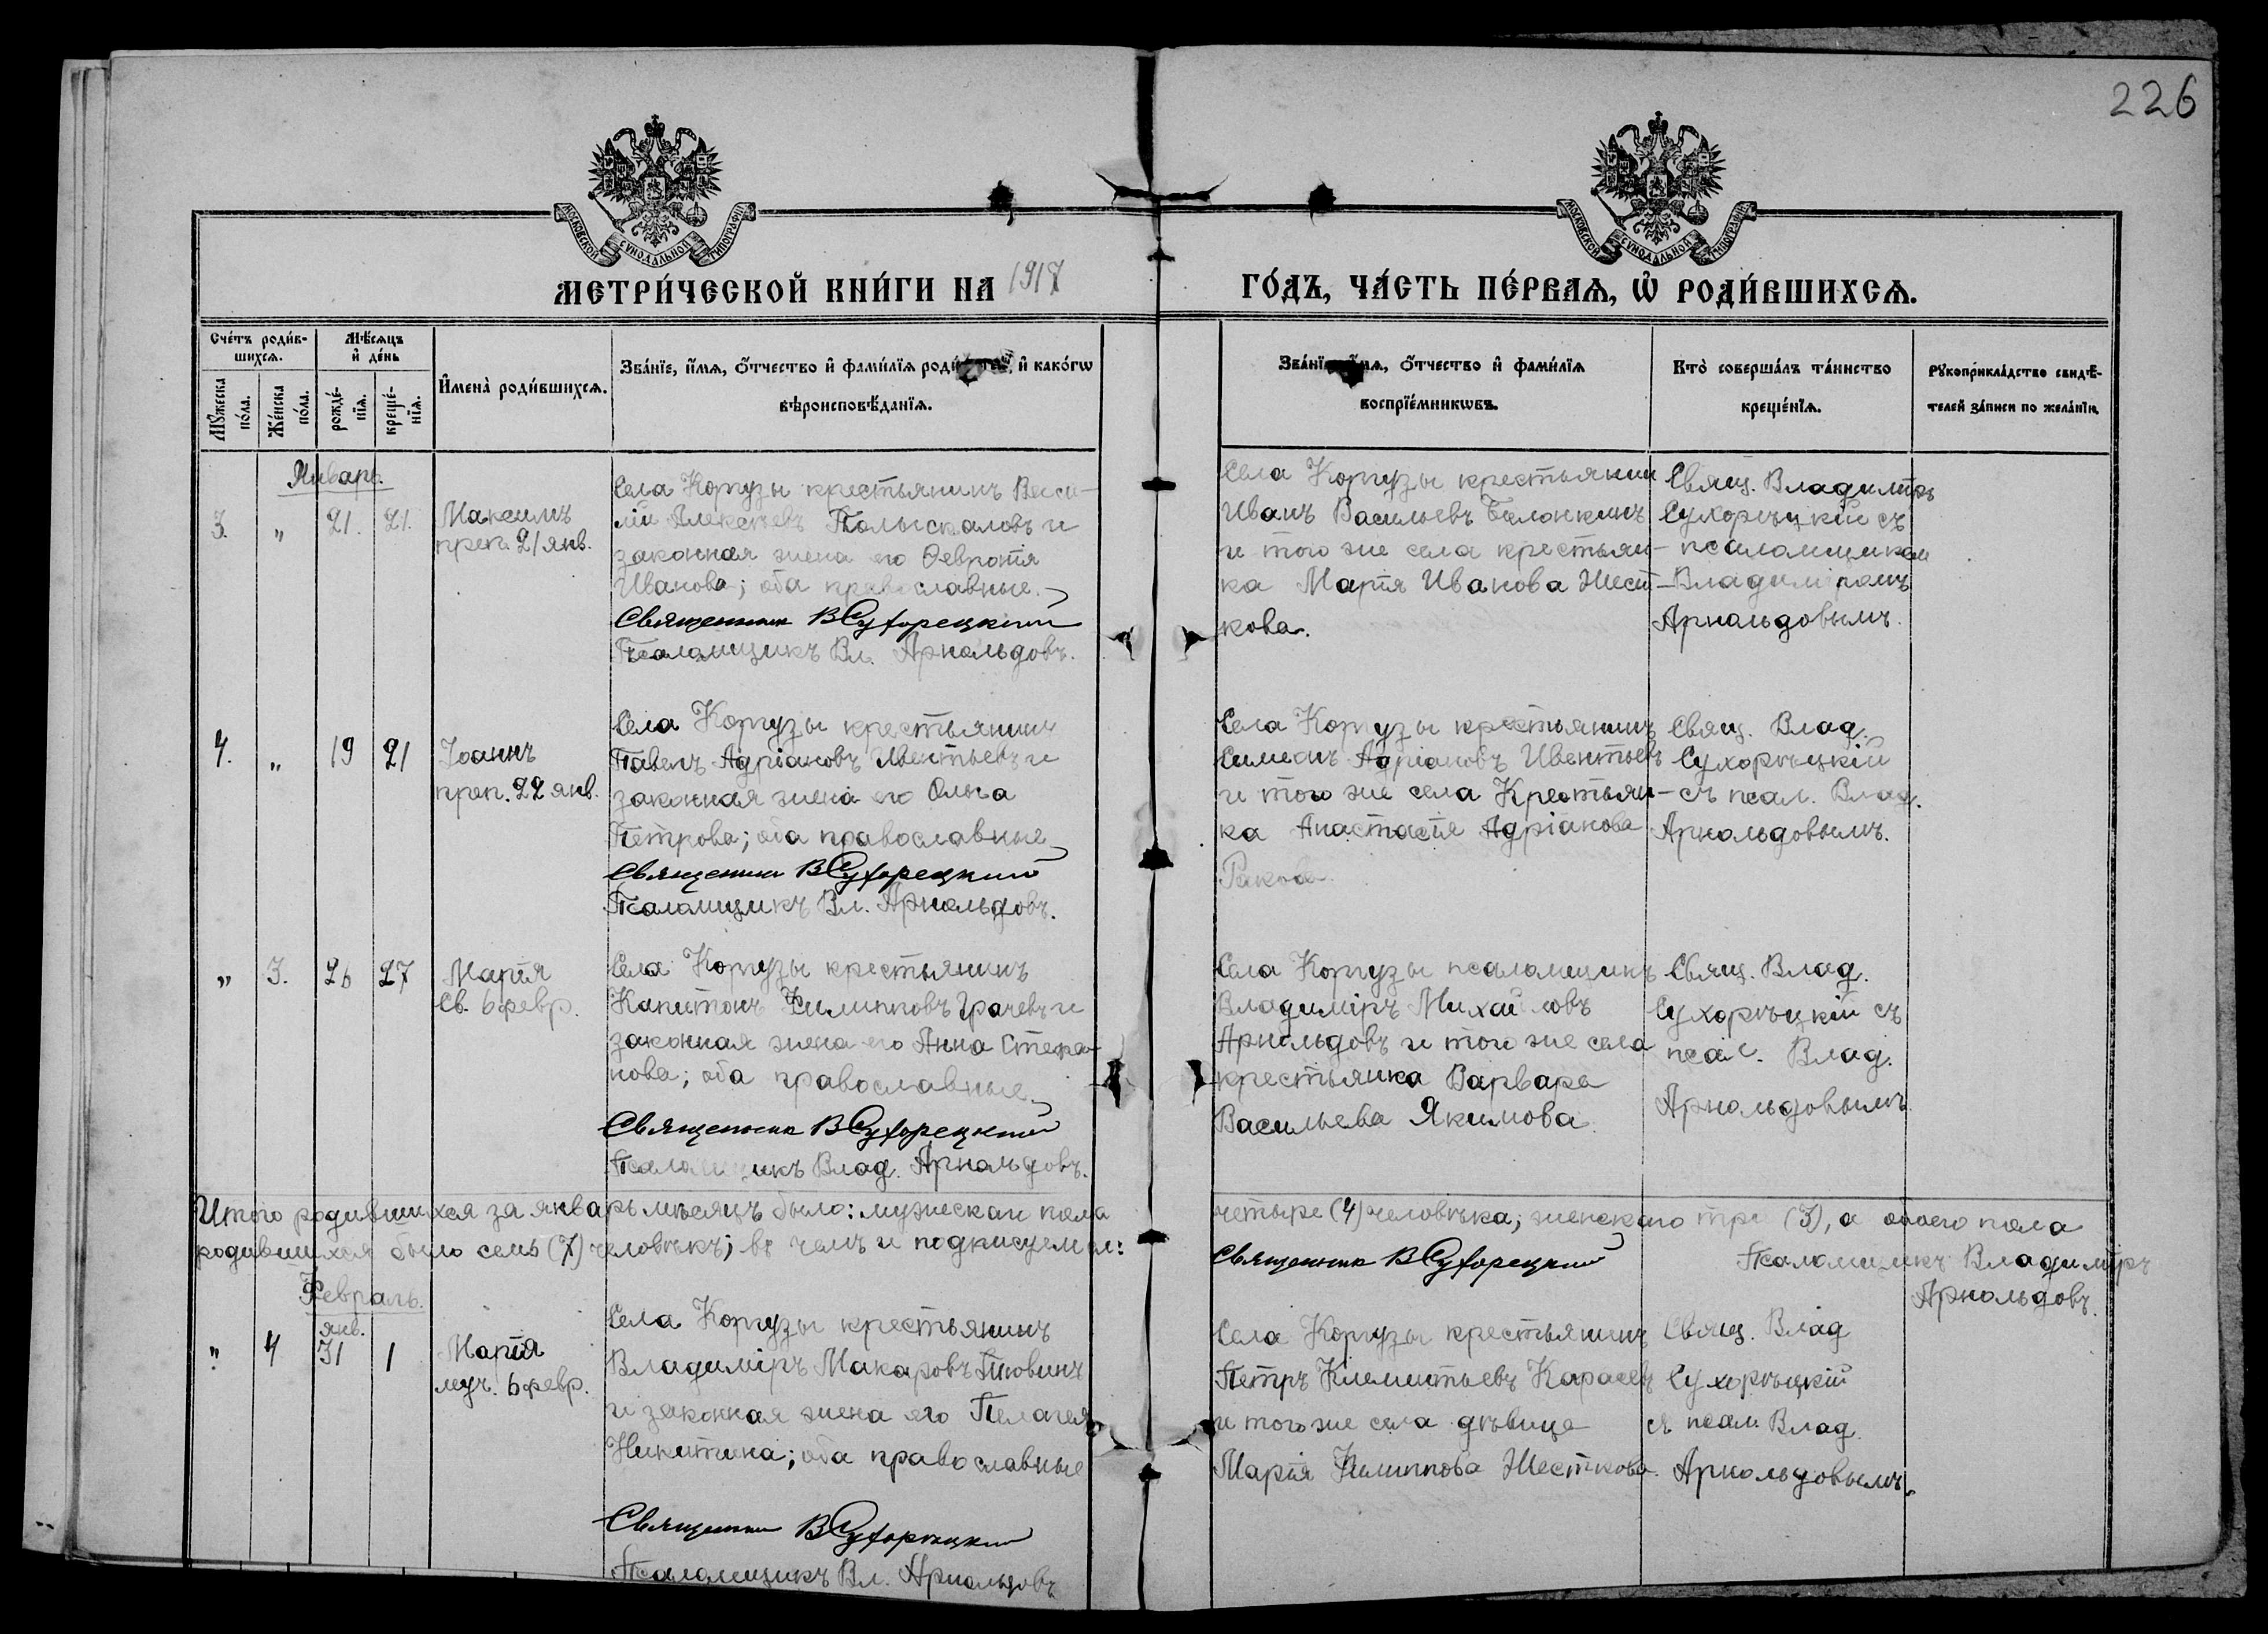 226
МОСКОВСКОЙ СѴНОДАЛЬНОЙ ТИПОГРАФІИ
МОСКОВСКОЙ СѴНОДАЛЬНОЙ ТИПОГРАФІИ
МЕТРИ́ЧЕСКОЙ КНИ́ГИ НА 1917 ГО́ДЪ, ЧА́СТЬ ПЕ́РВАѦ, Ѡ҆ РОДИ́ВШИХСѦ.
Сче́тъ роди́в-
шихсѧ.
Мꙋ́жеска по́ла.
Же́нска по́ла.
Мѣ́сѧцъ и҆ де́нь
рожде́-нїѧ.
креще́-нїѧ.
И҆мена̀ роди́вшихсѧ.
Зва́нїе, и҆́мѧ, ѻ҆́тчество и҆ фами́лїѧ и҆ како́гѡ
вѣроисповѣ́данїѧ.
ѻ҆́тчество и҆ фами́лїѧ
воспрїе́мникѡвъ.
Кто̀ соверша́лъ та́инство
креще́нїѧ.
Рꙋкоприкла́дство свидѣ́-
телей за́писи по жела́нїю.
Январь.
3. " 21. 21.
Максимъ
преп. 21 янв.
Села Коргузы крестьянинъ Васи-
лій Алексѣевъ Полыскаловъ и
законная жена его Ѳевронія
Иванова; оба православные.
Священник ВСухорецкий
Псаломщикъ Вл. Арнольдовъ.
Села Коргузы крестьянин
Иванъ Васильевъ Балонкинъ
и того же села крестьян-
ка Марія Иванова Шест-
кова.
Свящ. Владиміръ
Сухорѣцкій съ
псаломщиком
Владиміромъ
Арнольдовымъ.
4. " 19 21
Іоаннъ
преп. 22 янв.
Села Коргузы крестьянинъ
Павелъ Адріановъ Ивентьевъ и
законная жена его Ольга
Петрова; оба православные
Священник ВСухорецкий
Псаломщикъ Вл. Арнольдовъ.
Села Коргузы крестьянинъ
Симеонъ Адріановъ Ивентьевъ
и того же села Крестьян-
ка Анастасія Адріанова
Ракова.
Свящ. Влад.
Сухорѣцкій
съ псал. Влад.
Арнольдовымъ.
" 3. 26 27
Марія
Св. 6 февр.
Села Коргузы крестьянинъ
Капитонъ Филипповъ Грачевъ и
законная жена его Анна Стефа-
нова; оба православные
Священник ВСухорецкий
Псаломщикъ Влад. Арнольдовъ.
Села Коргузы псаломщикъ
Владиміръ Михайловъ
Арнольдовъ и того же села
крестьянка Варвара
Васильева Якимова.
Свящ. Влад.
Сухорѣцкій съ
псал. Влад.
Арнольдовымъ
Итого родившихся за январь мѣсяцъ было: мужскаго пола четыре (4) человѣка; женскаго три (3), а обоего пола
родившихся было семь (7) человѣкъ; въ чемъ и подписуемся:
Священник ВСухорецкий
Псаломщикъ Владиміръ
Арнольдовъ.
Февраль.
янв.
" 4 31 1
Марія
муч. 6 февр.
Села Коргузы крестьянинъ
Владиміръ Макаровъ
и законная жена его Пелагея
Никитина; оба православные
Священник ВСухорѣцкий
Псаломщикъ Вл. Арнольдовъ
Села Коргузы крестьянинъ
Петръ Климентьевъ Карасевъ
и того же села дѣвица
Марія Филиппова Шесткова.
Свящ. Влад
Сухорѣцкій
съ псал. Влад.
Арнольдовымъ.